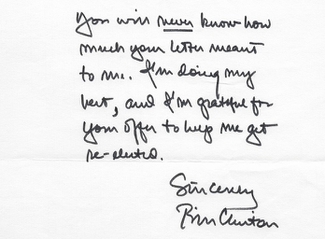 You will never know how
much your letter meant
to me. I'm doing my
best, and I'm grateful for
your offer to help me get
re-elected.
Sincerely
Bill Clinton